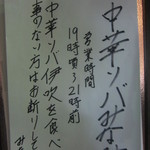 中華ソバみな
営業時間
19時頃ヨリ21時前
中華ソバ伊吹を食べ
事のない方はお断りし
み